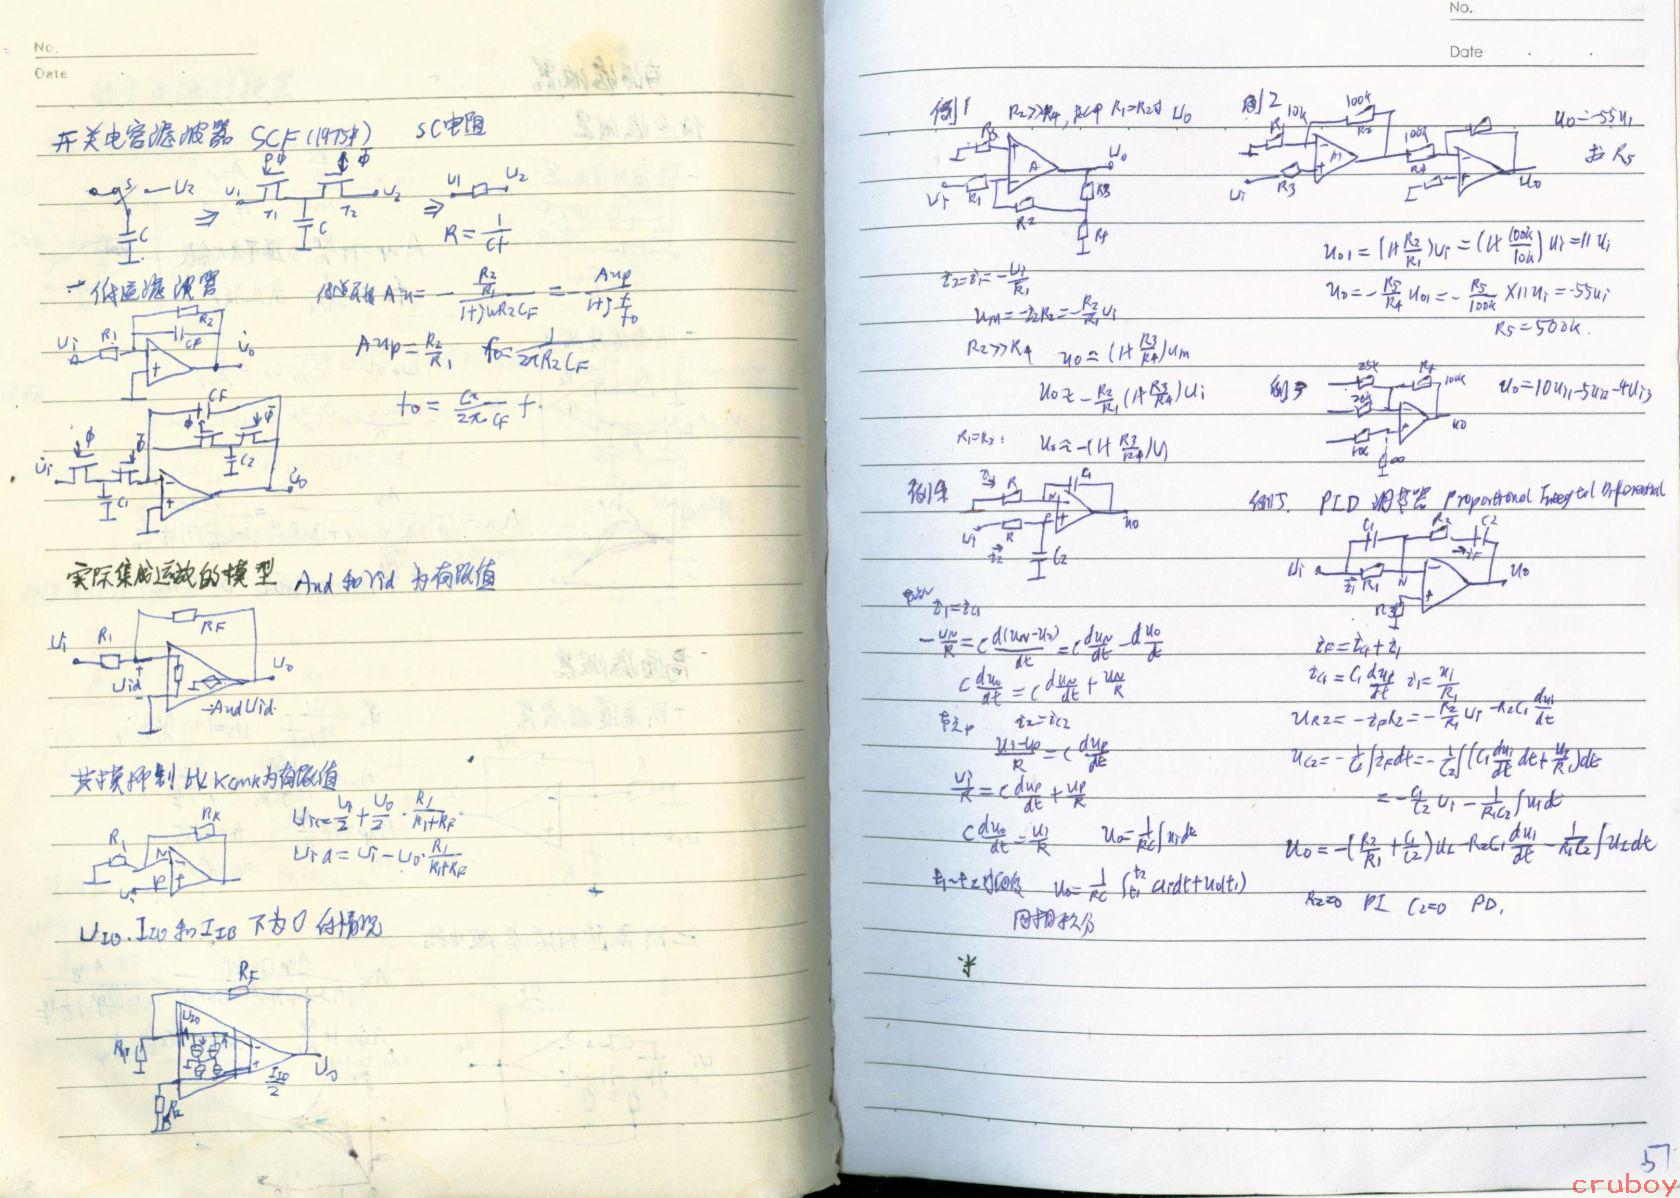 No.
Date
开关电容滤波器 SCF(1975年) SC电阻
S U2 ⇒ U1 Φ Φ̄ U2 ⇒ U1 U2
C T1 C T2 R=1/Cf
一 低通滤波器 Au=-(R2/R1)/(1+jωR2CF)=-Aup/(1+j f/f0)
Ui R1 R2 CF Uo
Aup=R2/R1 f0=1/(2πR2CF)
f0=C2/(2πCF) f
Ui Φ Φ̄ C1 CF Φ Φ̄ C2 Uo
实际集成运放的模型 Aud和rid 为有限值
Ui R1 RF Uid -AudUid Uo
共模抑制比KCMR为有限值
R1 RF N P Ui
Uic=Ui/2+Uo/2·R1/(R1+RF)
Uid=Ui-Uo·R1/(R1+RF)
UIO、IIO和IIB不为0的情况
RF UIO R2 IIO/2 Uo
No.
Date
例1 R2≫R4, R1=R2时 Uo
Ui R1 R2 R3 R4 A Uo
i2=i1=-Ui/R1
uM=-i2R2=-R2/R1 ui
R2≫R4 uo≈(1+R3/R4)uM
uo≈-R2/R1(1+R3/R4)ui
R1=R2: uo≈-(1+R3/R4)ui
例2 uo=-55ui
求 R5
10k 100k R2 100k R4 R3 Ui Uo
uo1=(1+R2/R1)ui=(1+100k/10k)ui=11ui
uo=-R5/R4 uo1=-R5/100k×11ui=-55ui
R5=500k.
例3 25k Rf 100k 20k 10k uo uo=10ui1-5ui2-4ui3
例4 R C Ui R C2 uo
i1=iC1
-uN/R=C d(uN-uo)/dt=C duN/dt-duo/dt
C duo/dt=C duN/dt+uN/R
i2=iC2
(ui-up)/R=C dup/dt
ui/R=C dup/dt+up/R
C duo/dt=ui/R uo=1/RC∫uidt
t1~t2时间段 uo=1/RC∫t1t2 uidt+uo(t1)
同相积分
例5. PID 调节器 Proportional Integral Differential
C1 R2 C2 Ui i1 R1 N iF R3 uo
iF=iC1+i1
iC1=C1 dui/dt i1=ui/R1
uR2=-iFR2=-R2/R1 ui-R2C1 dui/dt
uC2=-1/C2∫iFdt=-1/C2∫(C1 dui/dt dt+ui/R1)dt
=-C1/C2 ui-1/R1C2∫uidt
uo=-(R2/R1+C1/C2)ui-R2C1 dui/dt-1/R1C2∫uidt
R2=0 PI C2=0 PD.
57
cruboy